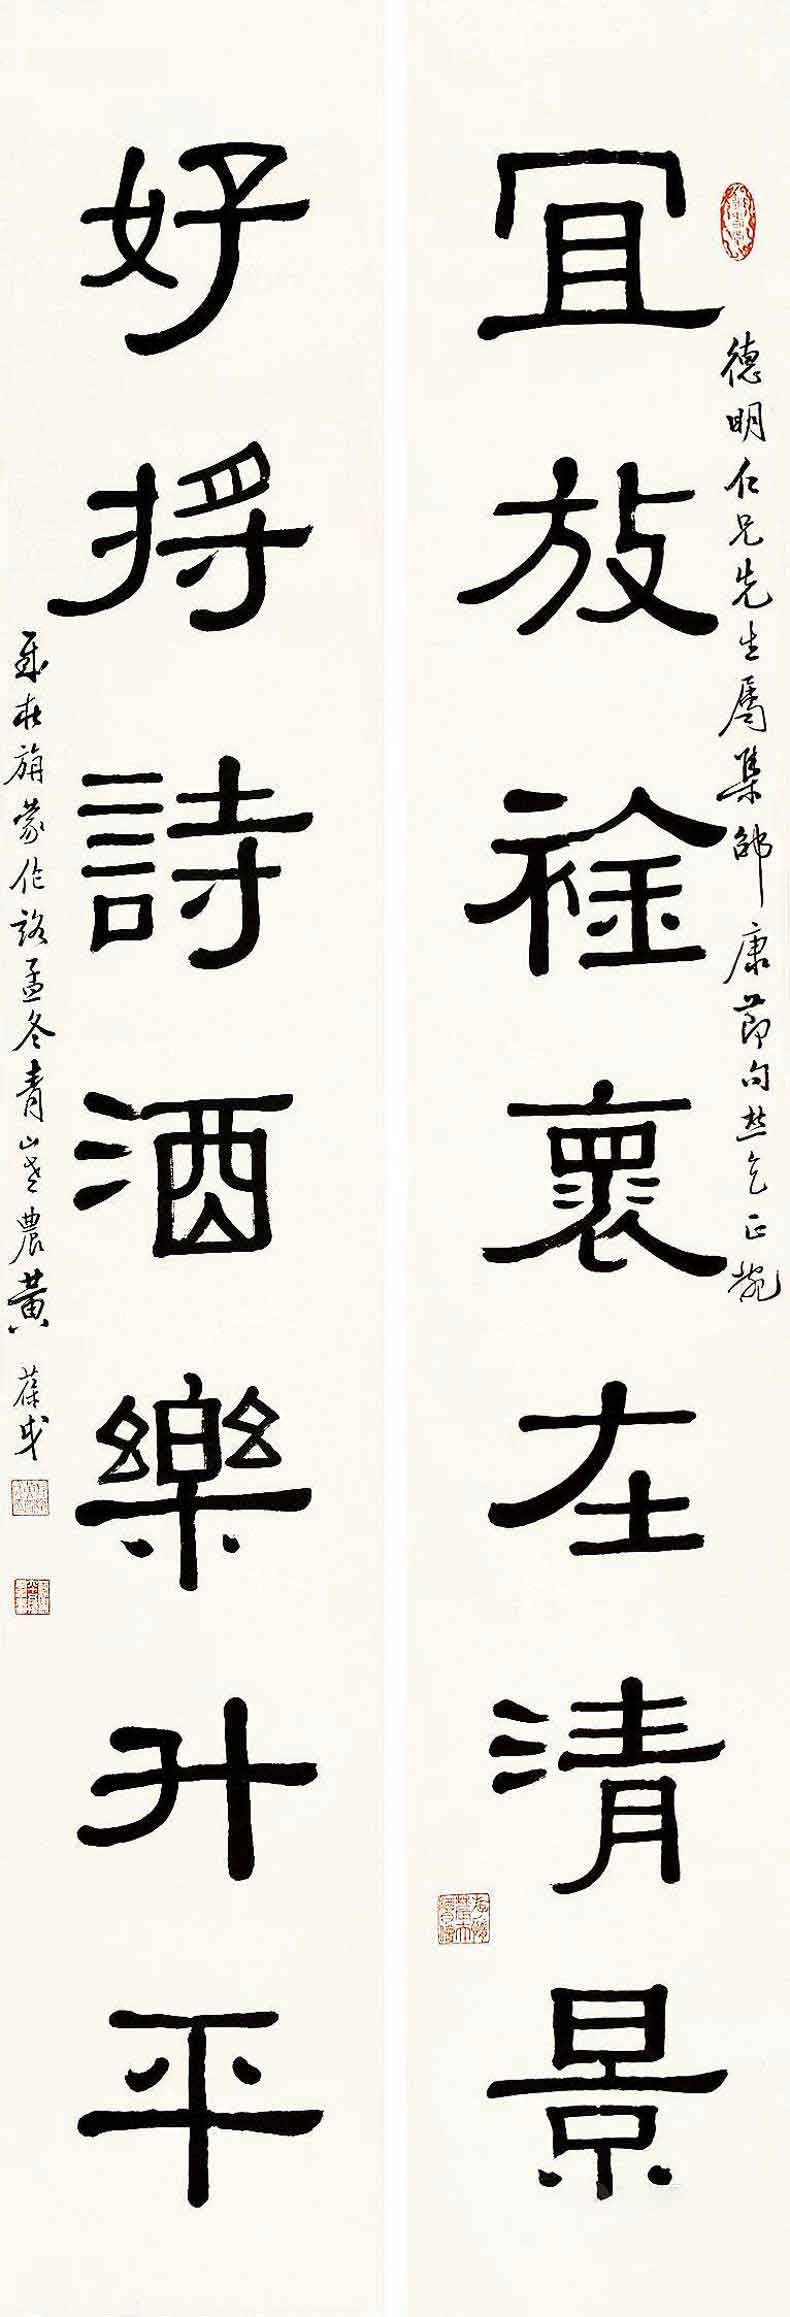 宜放襟褱在清景
德明仁兄先生屬集邵康節句並乞正捥
好將詩酒樂升平
歲在旃蒙作詻孟冬青山老農黃葆戉